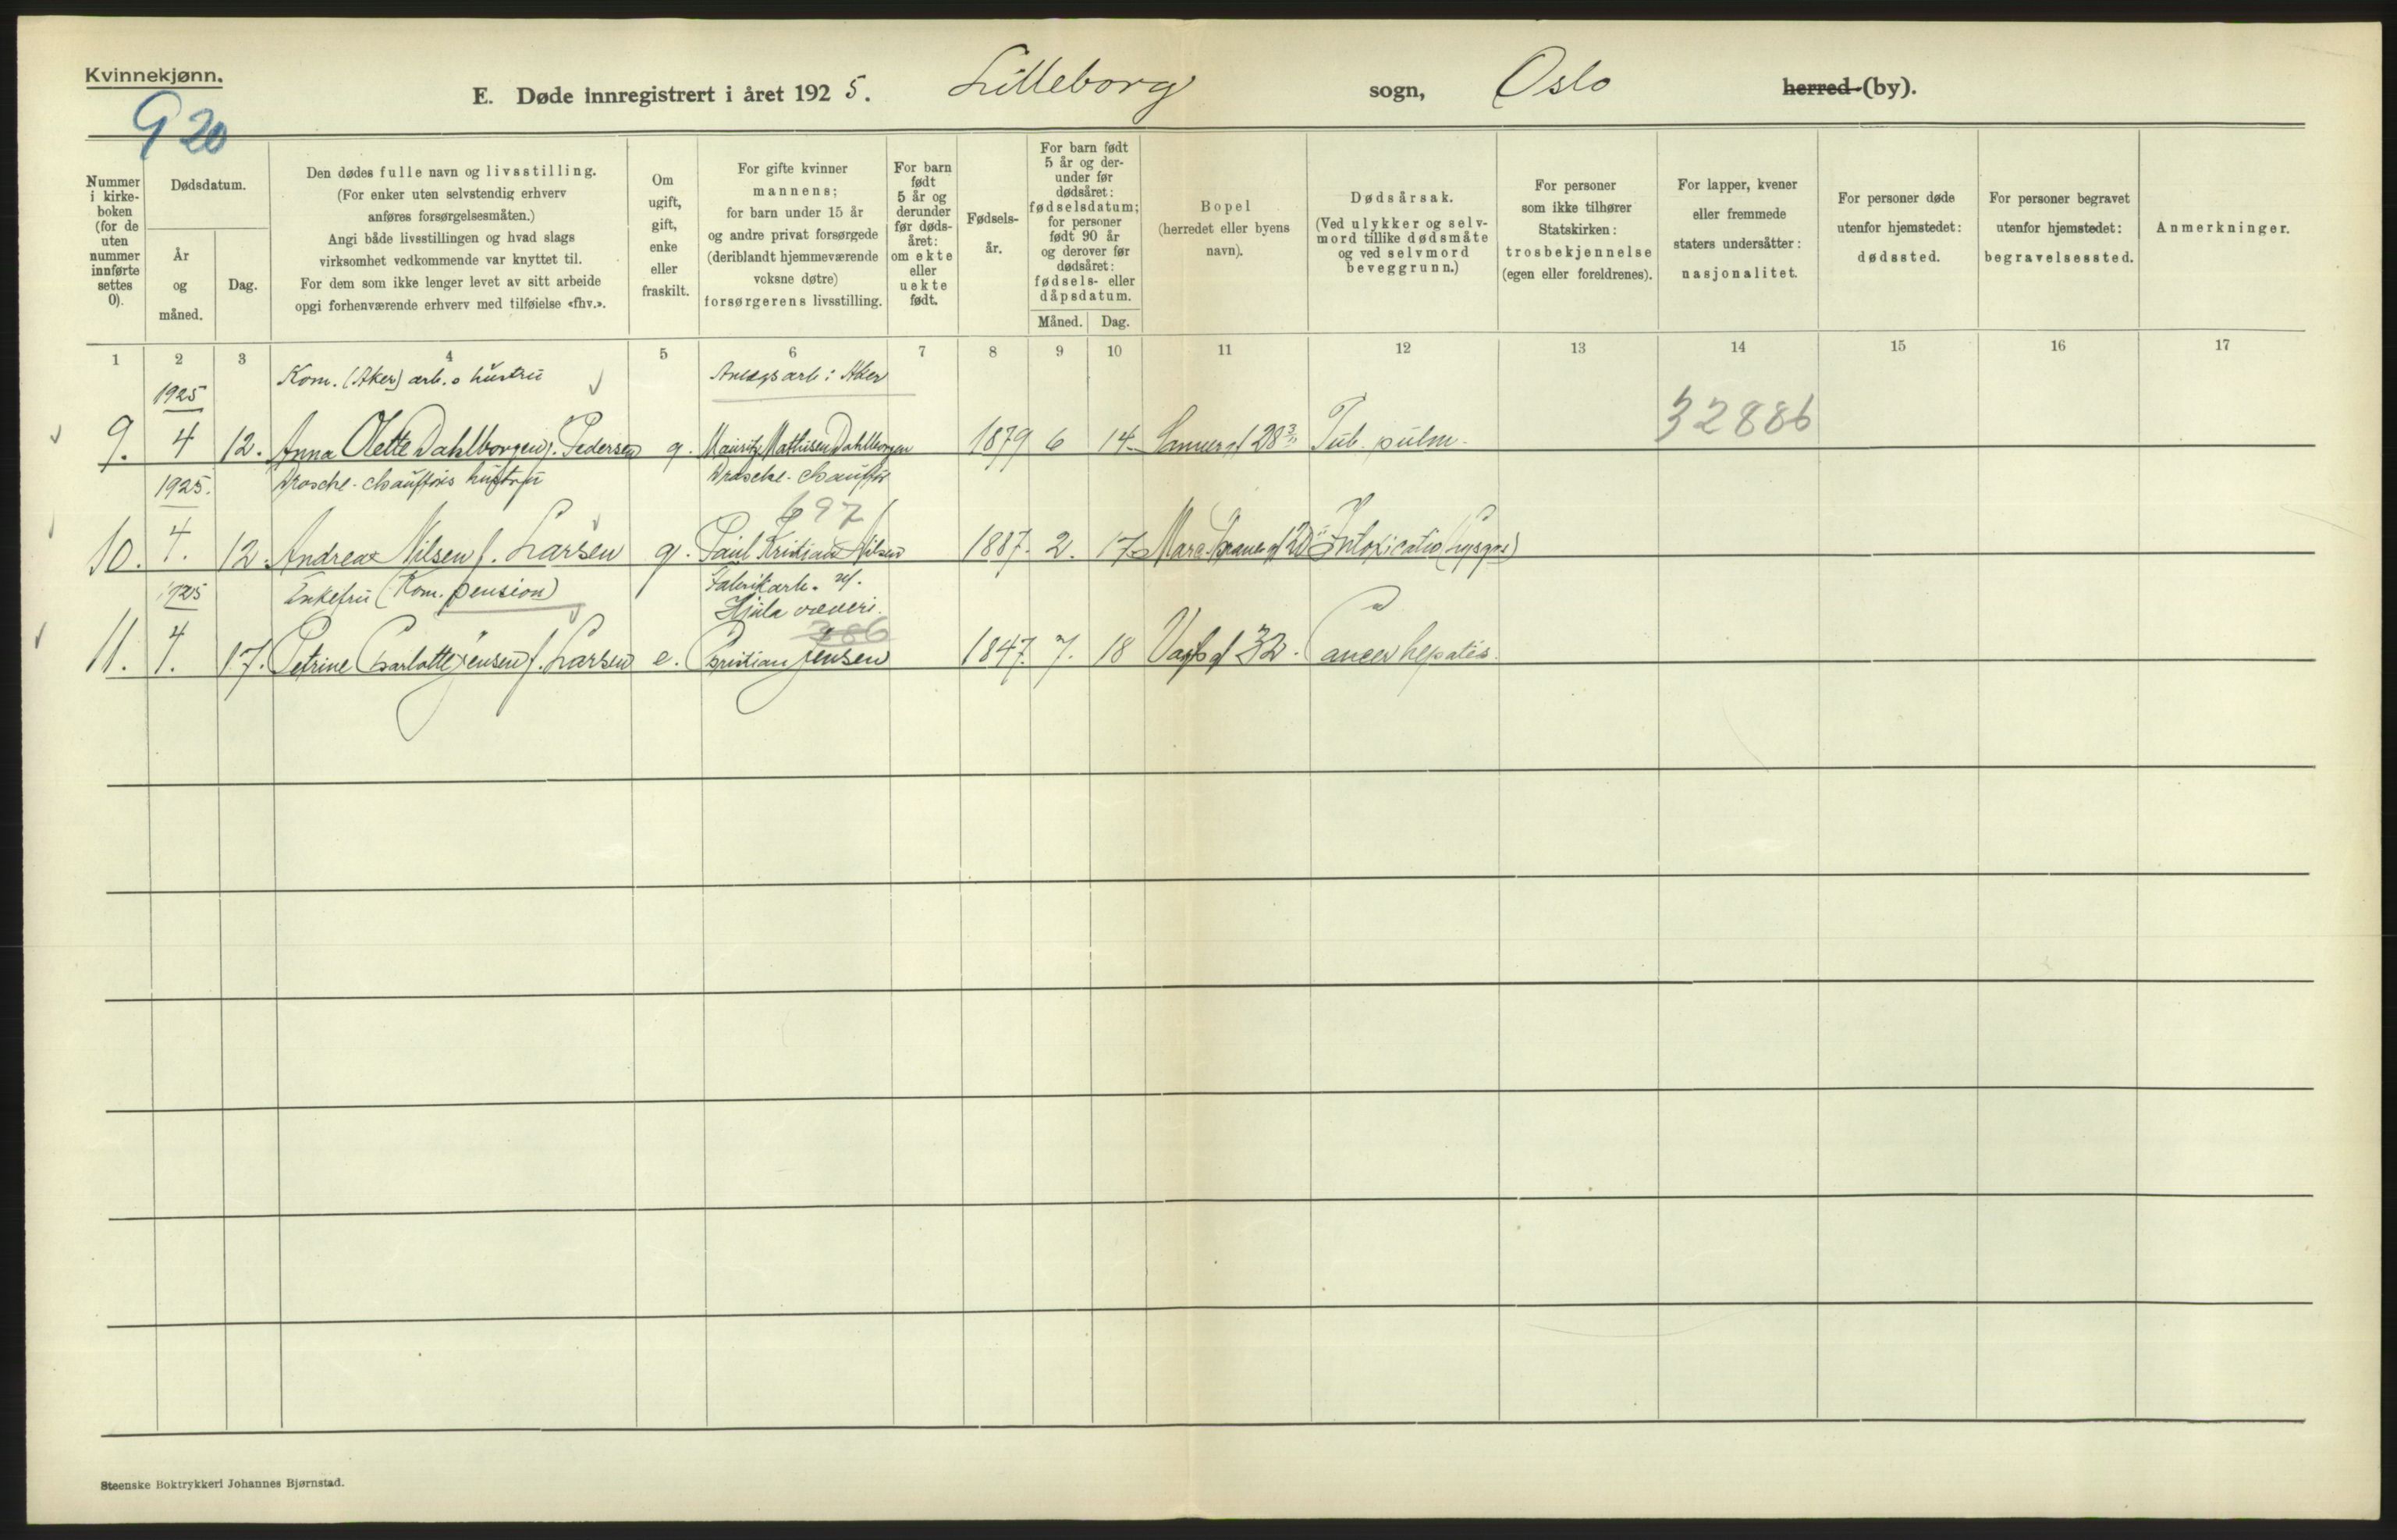 Kvinnekjønn.
E. Døde innregistrert i året 1925. Lilleborg sogn, Oslo herred (by).
920
Nummer i kirke-boken (for de uten nummer innførte settes 0).
Dødsdatum.
År og måned.
Dag.
Den dødes fulle navn og livsstilling.
(For enker uten selvstendig erhverv
anføres forsørgelsesmåten.)
Angi både livsstillingen og hvad slags
virksomhet vedkommende var knyttet til.
For dem som ikke lenger levet av sitt arbeide
opgi forhenværende erhverv med tilføielse «fhv.».
Om
ugift,
gift,
enke
eller
fraskilt.
For gifte kvinner
mannens;
for barn under 15 år
og andre privat forsørgede
(deriblandt hjemmeværende
voksne døtre)
forsørgerens livsstilling.
For barn
født
5 år og
derunder
før døds-
året:
om ekte
eller
uekte
født.
Fødsels-
år.
For barn født
5 år og der-
under før
dødsåret:
fødselsdatum;
for personer
født 90 år
og derover før
dødsåret:
fødsels- eller
dåpsdatum.
Måned. Dag.
Bopel
(herredet eller byens
navn).
Dødsårsak.
(Ved ulykker og selv-
mord tillike dødsmåte
og ved selvmord
beveggrunn.)
For personer
som ikke tilhører
Statskirken:
trosbekjennelse
(egen eller foreldrenes).
For lapper, kvener
eller fremmede
staters undersåtter:
nasjonalitet.
For personer døde
utenfor hjemstedet:
dødssted.
For personer begravet
utenfor hjemstedet:
begravelsessted.
Anmerkninger.
1 2 3 4 5 6 7 8 9 10 11 12 13 14 15 16 17
1925 Kom. (Aker) arb. s hustru Anlegsarb. i Aker
9. 4 12. Anna Olette Dahlborgen f. Pedersen g. Mauritz Mathisen Dahlborgen 1879 6 14 28 Tub. pulm. 32886
1925. Drosche-chaufførs hustru Drosche-chauffør
697
10. 4. 12. Andrea Nilsen f. Larsen g. Paul Kristian Nilsen 1887. 2. 17. Intoxicatio (Lysgas)
1925 Enkefru (Kom. pension) Fabrikarb. v.
Hjula væveri.
386
11. 4. 17. Petrine Charlotte Jensen f. Larsen e. Christian Jensen 1847. 7. 18 32. Cancer hepatis.
Steenske Boktrykkeri Johannes Bjørnstad.